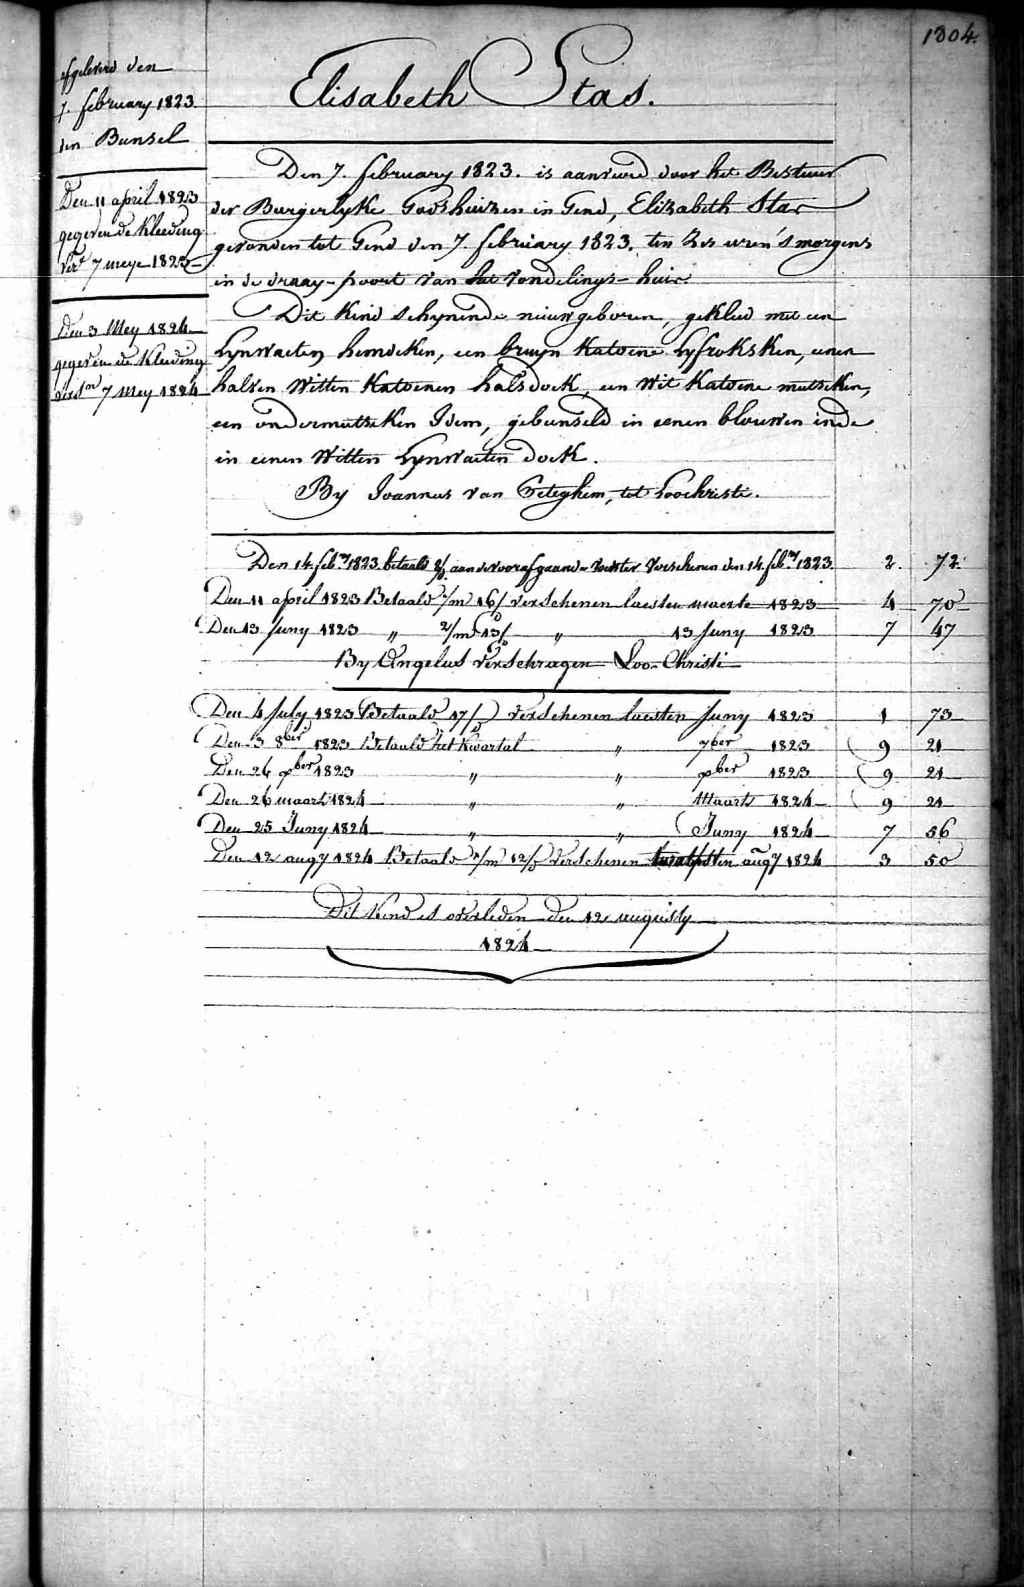 1304.
afgeleverd den
7. february 1823.
den Bunsel
Den 11 april 1823
gegeven de Kleeding
7 meye 1823
Den 3 Mey 1824
gegeven de Kleeding
7 Mey 1824
Elisabeth Stas.
Den 7. february 1823. is aanveird door het Bestuur
der Burgerlyke Godshuizen in Gend, Elizabeth Stas
gevonden tot Gend den 7. february 1823. ten Zes uren 's morgens
in de draay-poort van het vondelings-huis.
Dit Kind schynende nieuwgeboren, gekleed met een
Lynwaeten hemdeken, een bruyn Katoene Lyfroksken, eenen
halven Witten Katoenen halsdoek, een Wit Katoene mutseken,
een ondermutseken Idem, gebunseld in eenen blouwen ende
in eenen Witten Lynwaeten doek.
By Joannes van tot Loochristi.
Den 14. feb.ry 1823. betaald aan de voorafgaande voedster Verschenen den 14. feb.ry 1823. 2. 72.
Den 11 april 1823 Betaald 1/m 16/ verschenen laesten maerte 1823 4 70
Den 13 Juny 1823 „ 2/m 13/ „ 13 Juny 1823 7 47
By Angelus Verschragen Loo-Christi
Den 4 July 1823 Betaald 17/ verschenen laesten Juny 1823 1 73
Den 3 8ber 1823 Betaald het Kwartal „ 7ber 1823 9 21
Den 26 9ber 1823 „ „ 9ber 1823 9 21
Den 26 maart 1824 „ „ Maart 1824 9 21
Den 25 Juny 1824 „ „ Juny 1824 7 56
Den 12 augy 1824 Betaald 1/m 12/ verschenen twalfsten augy 1824 3 50
Dit Kind is overleden den 12 augusty
1824